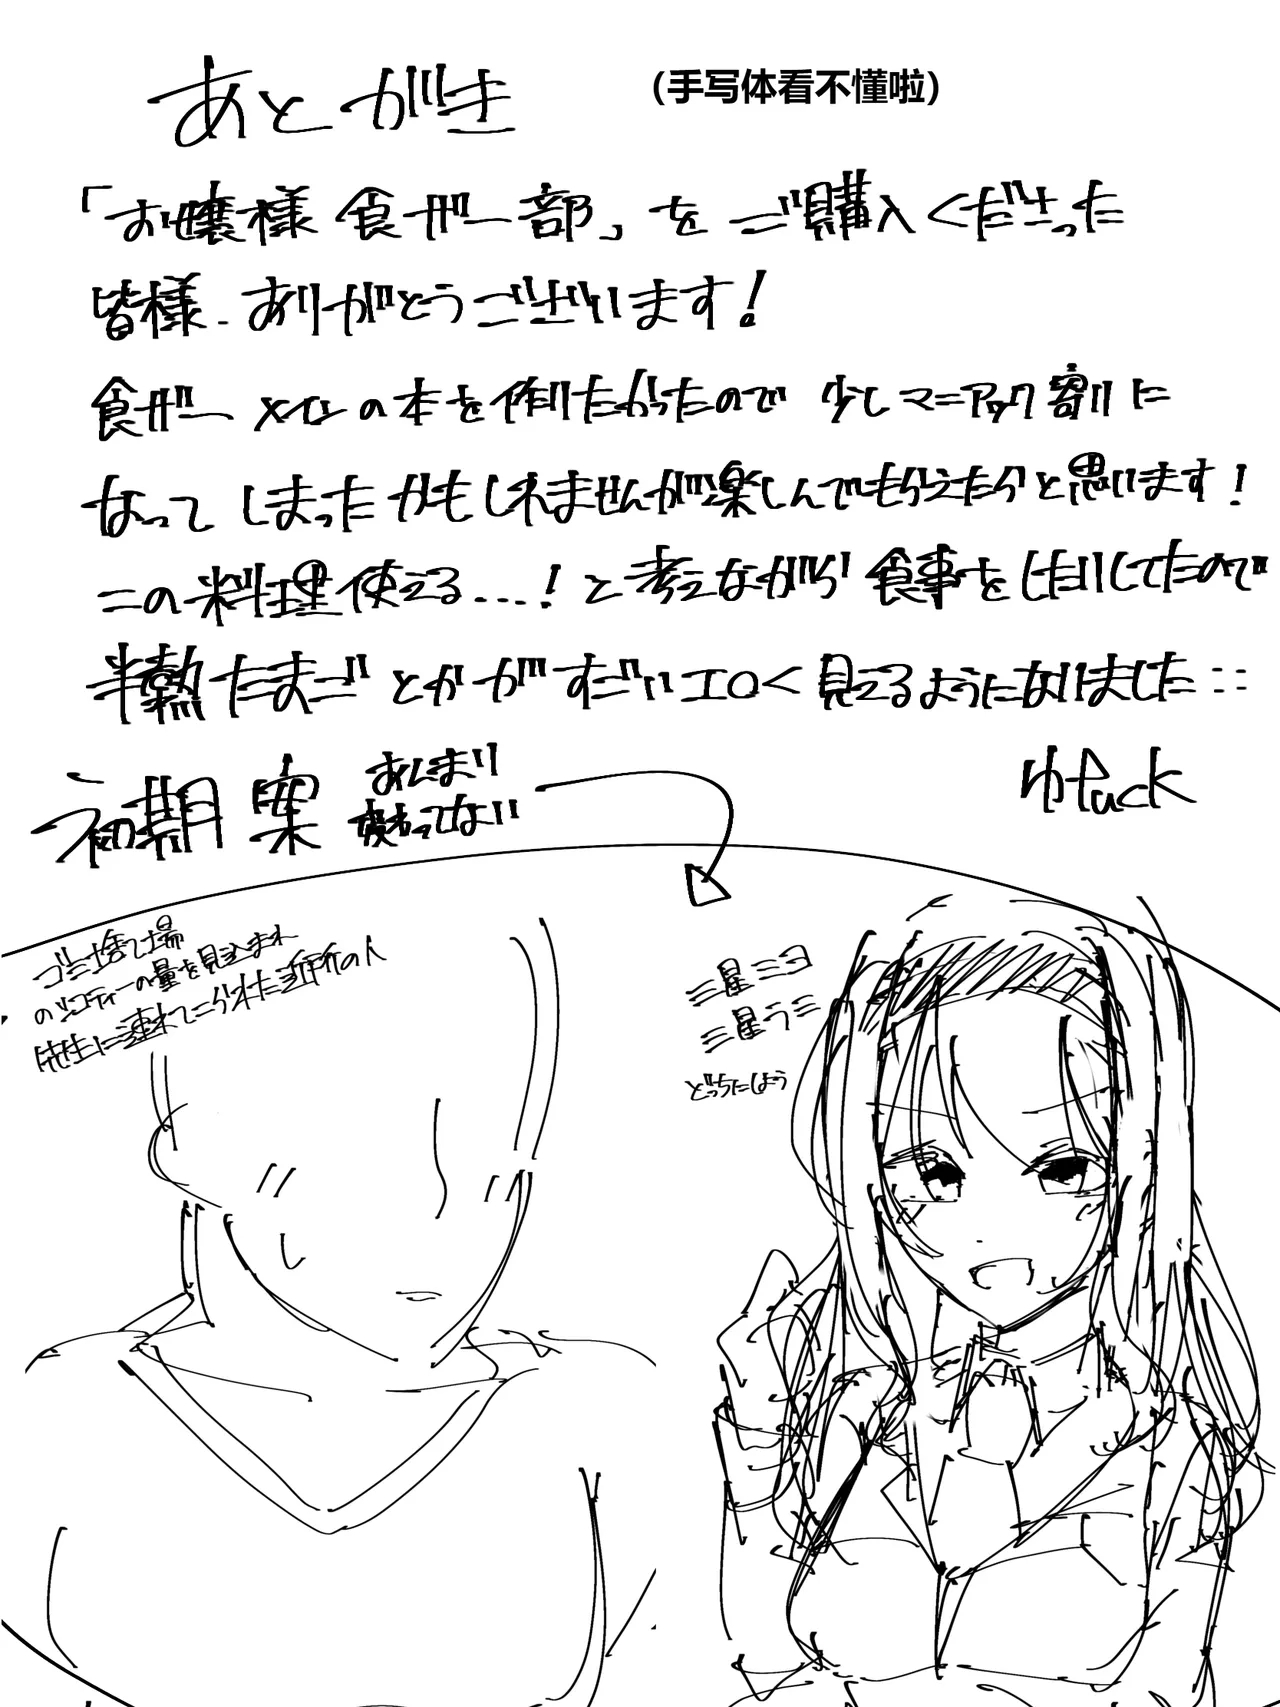 あとがき
(手写体看不懂啦)
「お嬢様食ザー部」をご購入くださった
皆様、ありがとうございます!
食ザーメインの本を作りたかったので少しマニアック寄りに
なってしまったかもしれませんが楽しんでもらえたらと思います!
この料理使える...!と考えながら食事をしたりしてたので
半熟たまごとかがすごいエロく見えるようになりました...
初期案
あんまり
変わってない
ゴミ捨て場
の量を見込まれ
先生に連れてこられた近所の人
三星三コ
三星ラミ
どっちにしよう